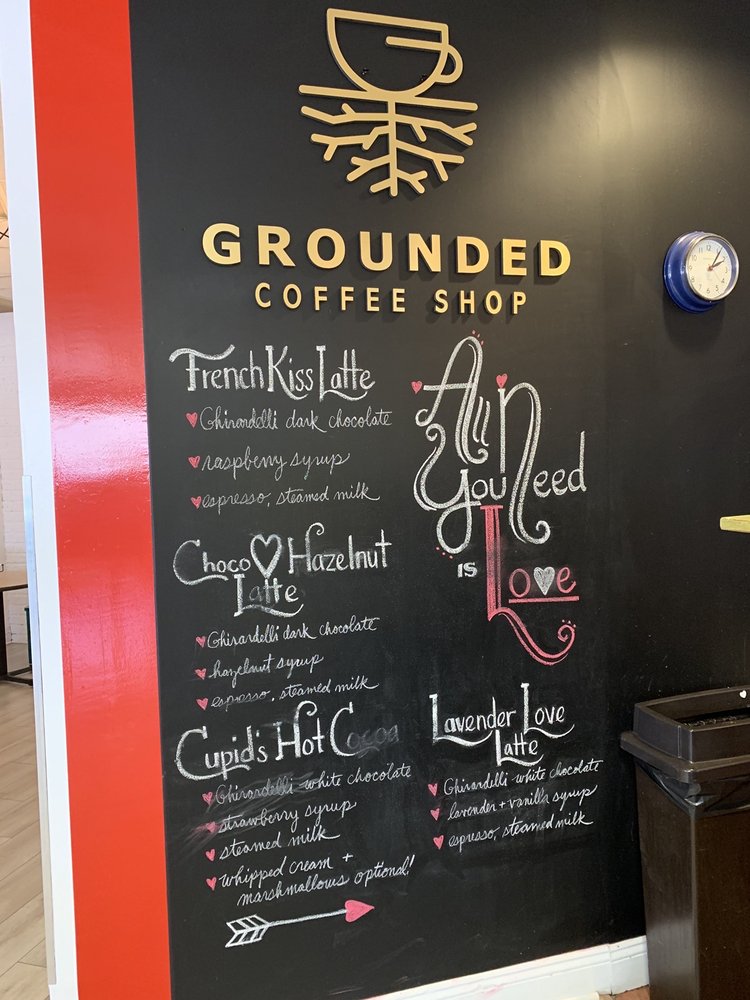 GROUNDED
COFFEE SHOP
French Kiss Latte
Ghirardelli dark chocolate
raspberry syrup
espresso, steamed milk
All
You Need
is Love
Choco Hazelnut
Latte
Ghirardelli dark chocolate
hazelnut syrup
espresso, steamed milk
Cupid's Hot Cocoa
Ghirardelli white chocolate
strawberry syrup
steamed milk
whipped cream +
marshmallows optional!
Lavender Love
Latte
Ghirardelli white chocolate
lavender + vanilla syrup
espresso, steamed milk